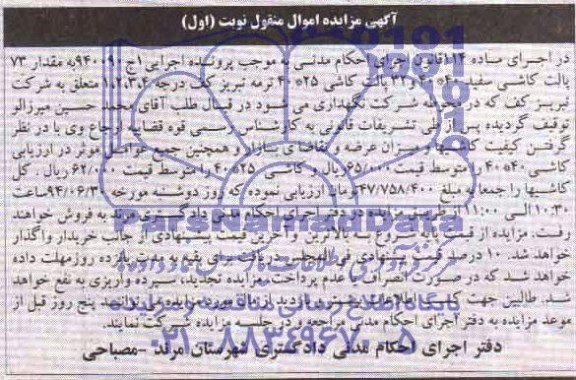 آگهی مزایده اموال منقول نوبت (اول)
در اجرای ماده ۱۱۴ قانون اجرای احکام مدنی به موجب پرونده اجرایی ۹۴۰۰۹۰ اج به مقدار ۷۳
پالت کاشی سفید ۴۰*۴۰ و ۳۲ پالت کاشی ۲۵*۴۰ ترمه تبریز کف درجه ۱،۲،۳،۴ متعلق به شرکت
تبریز کف که در محوطه شرکت نگهداری می شود در قبال طلب آقای محمد حسین میرزالو
توقیف گردیده پس از طی تشریفات قانونی به کارشناس رسمی قوه قضاییه ارجاع وی با در نظر
گرفتن کیفیت کاشیها و میزان عرضه و تقاضای بازار و همچنین جمیع عوامل موثر در ارزیابی
کاشی ۴۰*۴۰ را متوسط قیمت ۶۵/۰۰۰ ریال و کاشی ۲۵*۴۰ را متوسط قیمت ۶۲/۰۰۰ ریال. کل
کاشیها را جمعا به مبلغ ۴۷/۷۵۸/۴۰۰ تومان ارزیابی نموده که روز دوشنبه مورخه ۹۴/۰۶/۳۰ ساعت
۱۰:۳۰ الی ۱۱:۰۰ از طریق مزایده در دفتر اجرای احکام مدنی دادگستری مرند به فروش خواهند
رفت. مزایده از قیمت شروع به بالاترین و آخرین قیمت پیشنهادی از جانب خریدار واگذار
خواهد شد. ۱۰ درصد قیمت پیشنهادی فی المجلس دریافت برای بقیه به مدت پانزده روز مهلت داده
خواهد شد که در صورت انصراف یا عدم پرداخت، مزایده تجدید، سپرده واریزی به نفع خواهد
شد. طالبین جهت کسب اطلاعات بیشتر و بازدید از مان مورد مزایده می توانند پنج روز قبل از
موعد مزایده به دفتر اجرای احکام مدنی مراجعه و در جلسه مزایده شرکت نمایند.
دفتر اجرای احکام مدنی دادگستری شهرستان مرند -مصباحی
ParsNamadData
۰۲۱-۸۸۳۴۹۶۷۰